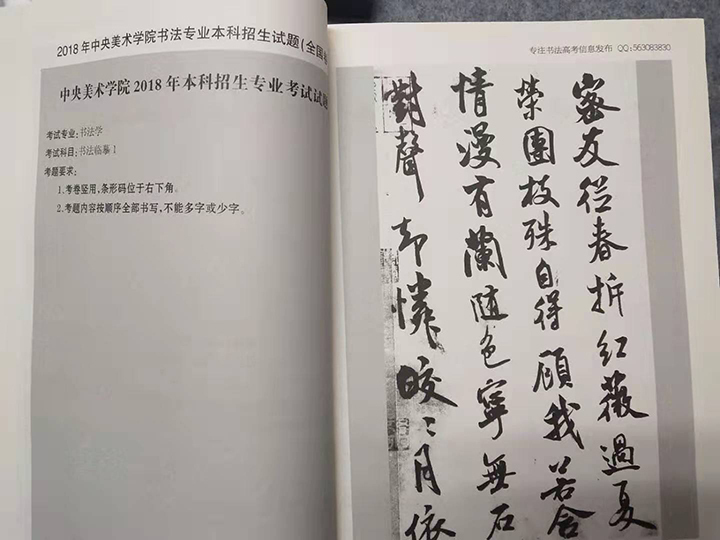 2018 年中央美术学院书法专业本科招生试题(全国
中央美术学院 2018 年本科招生专业考试试题
考试专业:书法学
考试科目:书法临摹 1
考题要求:
1.考卷竖用,条形码位于右下角。
2.考题内容按顺序全部书写,不能多字或少字。
专注书法高考信息发布 QQ:563083830
密友從春拆紅薇過夏
榮團枝殊自得顧我若含
情漫有蘭随色寧無石
對聲却憐皎〻月依